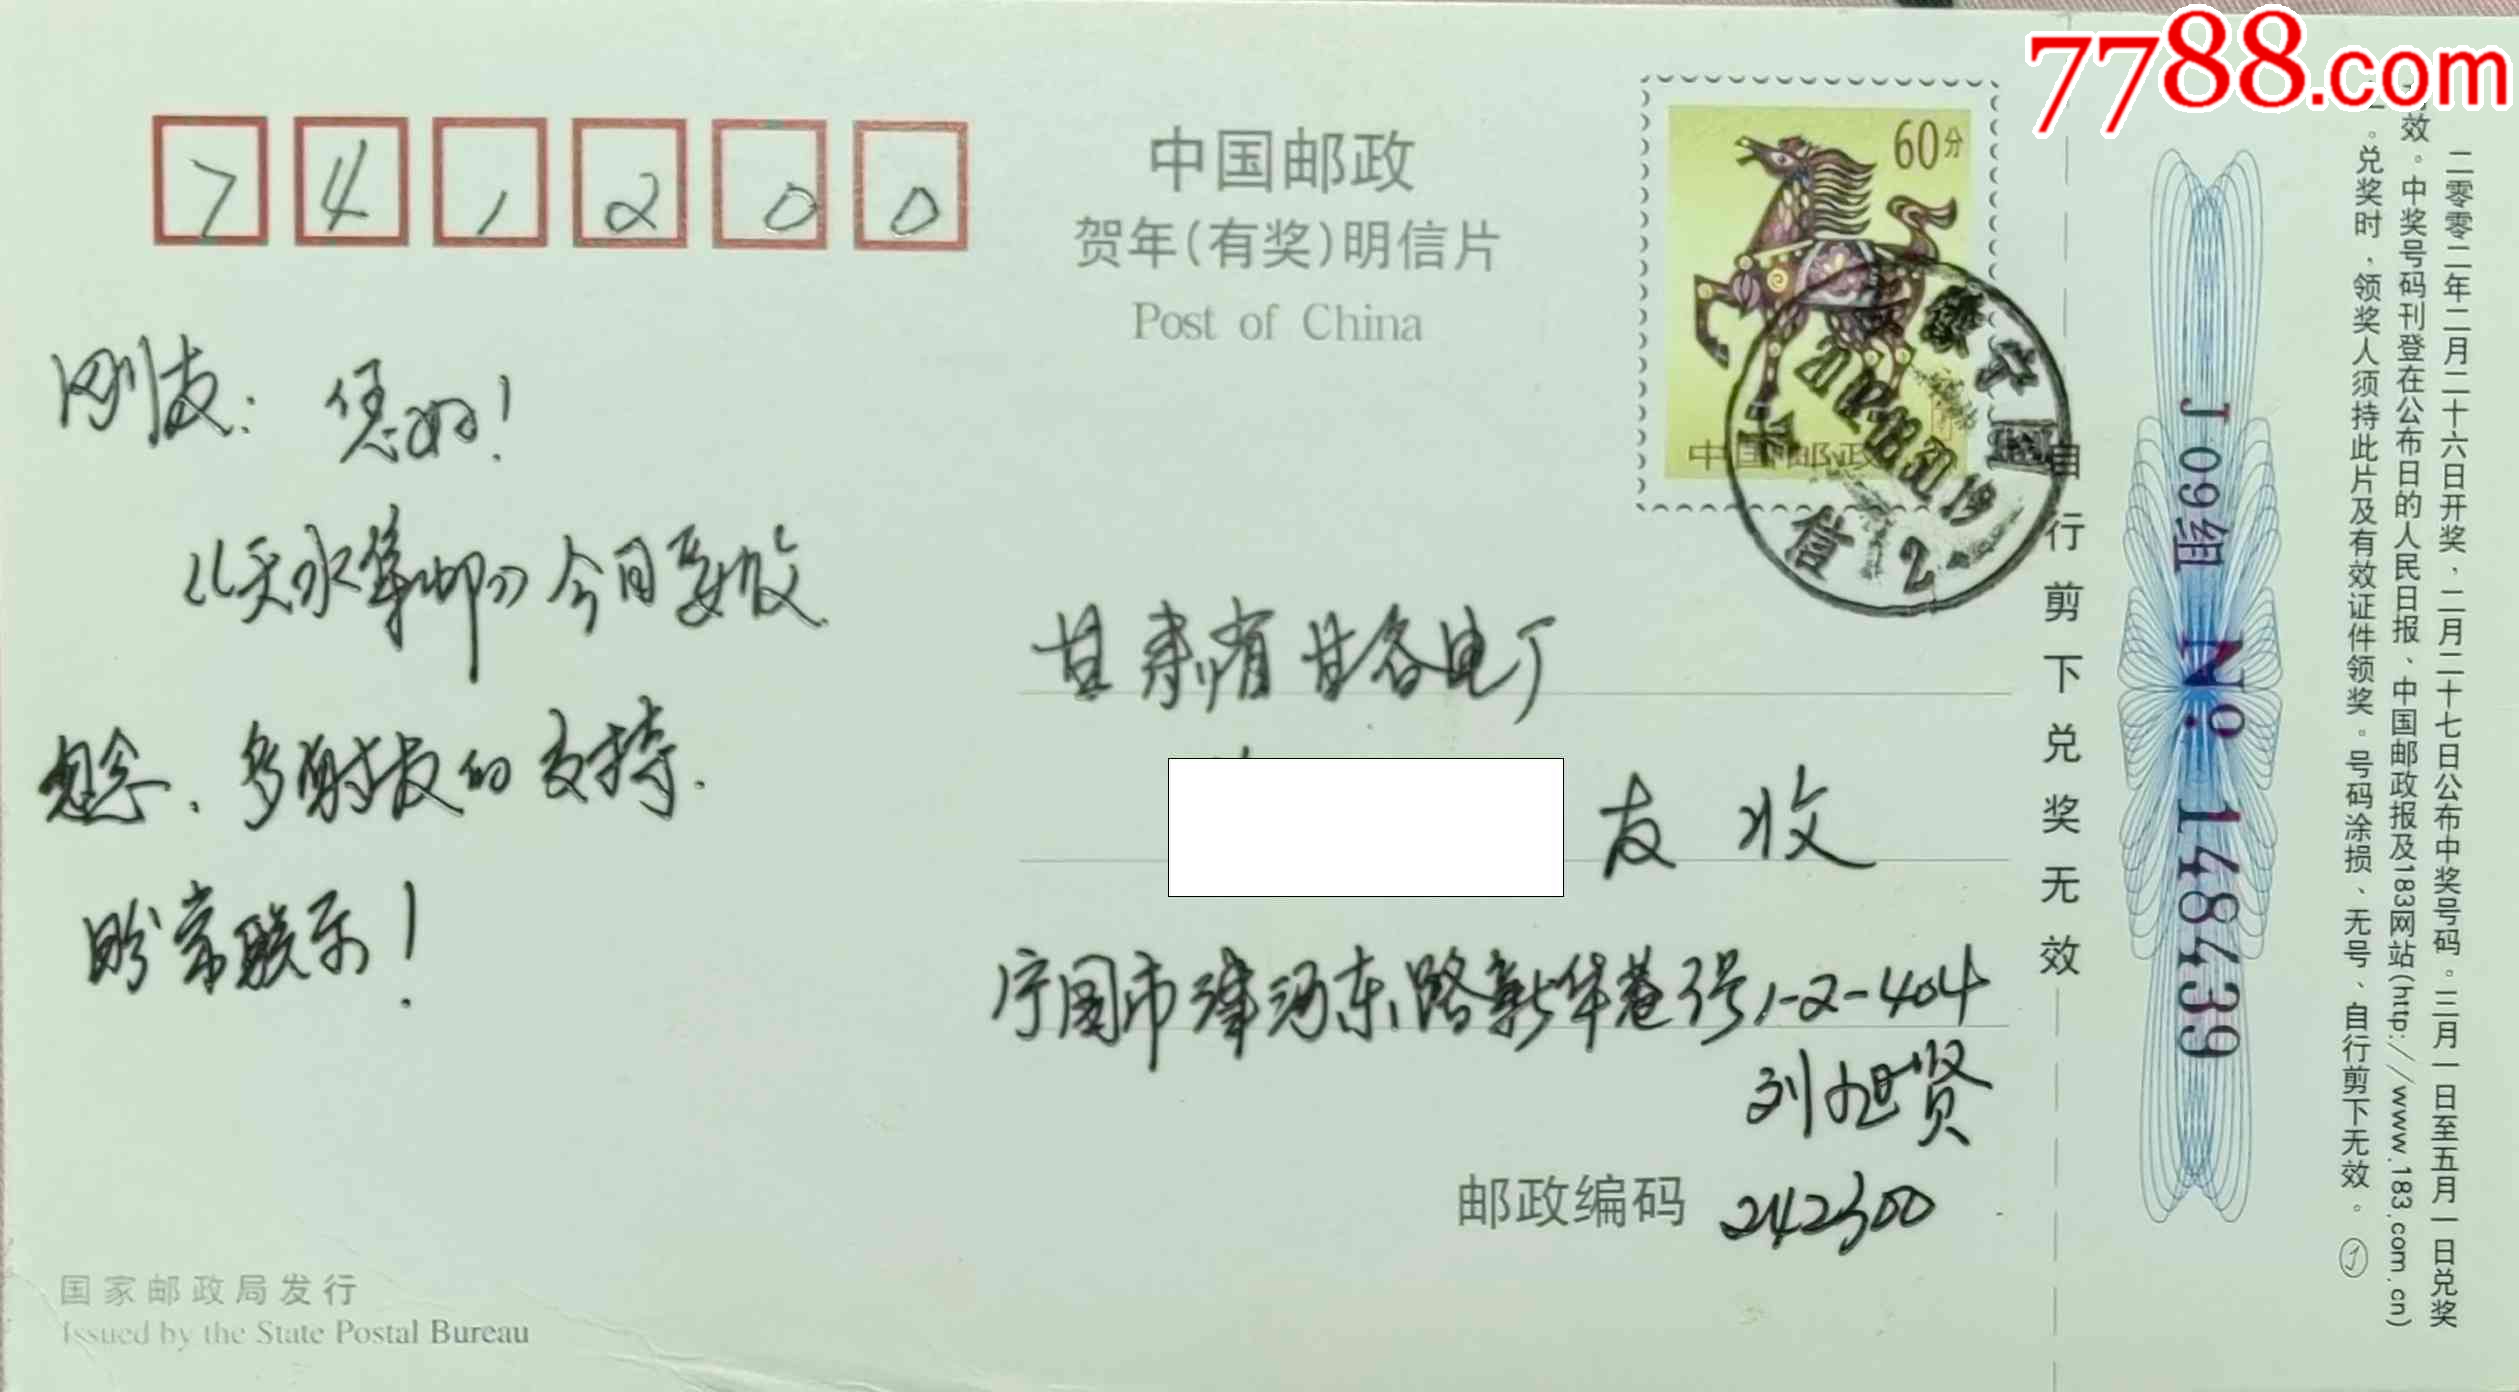 7788.com
741200
中国邮政
贺年(有奖)明信片
Post of China
60分
中国邮政
刚友：您好！
《天水集邮》今日妥收
勿念、多谢友的支持.
盼常联系！
甘肃省甘谷电厂
友 收
宁国市津河东路新华巷1号1-2-404
刘旭贤
邮政编码 242300
国家邮政局发行
Issued by the State Postal Bureau
安徽宁国
信 2
自行剪下兑奖无效
J09组 Nº 148439
二零零二年二月二十六日开奖、二月二十七日公布中奖号码。三月一日至五月一日兑奖
有效。中奖号码刊登在公布日的人民日报、中国邮政报及183网站(http://www.183.com.cn)
。兑奖时，领奖人须持此片及有效证件领奖。号码涂损、无号、自行剪下无效。